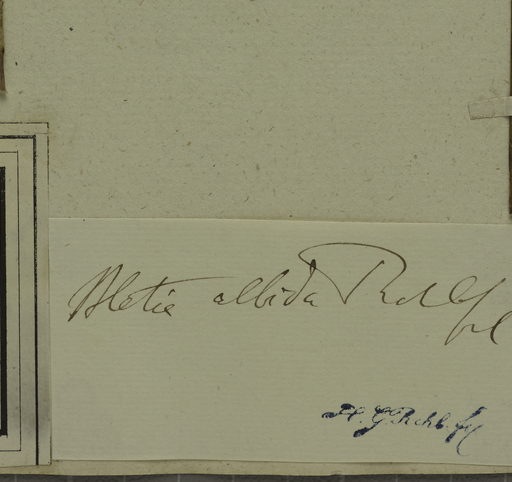 Bletia albida Rchb fil
H. G. Rchb. fil